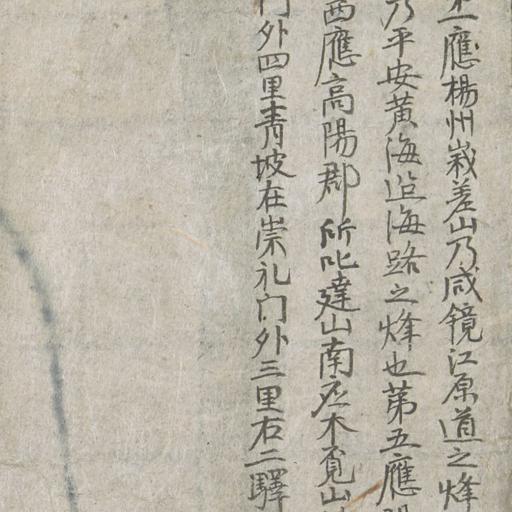 應楊州峩差山乃咸镜江原道之烽
乃平安黄海沿海路之烽也第五應陽
西應高陽郡所叱達山南应木覓山
门外四里青坡在崇礼门外三里右二驛